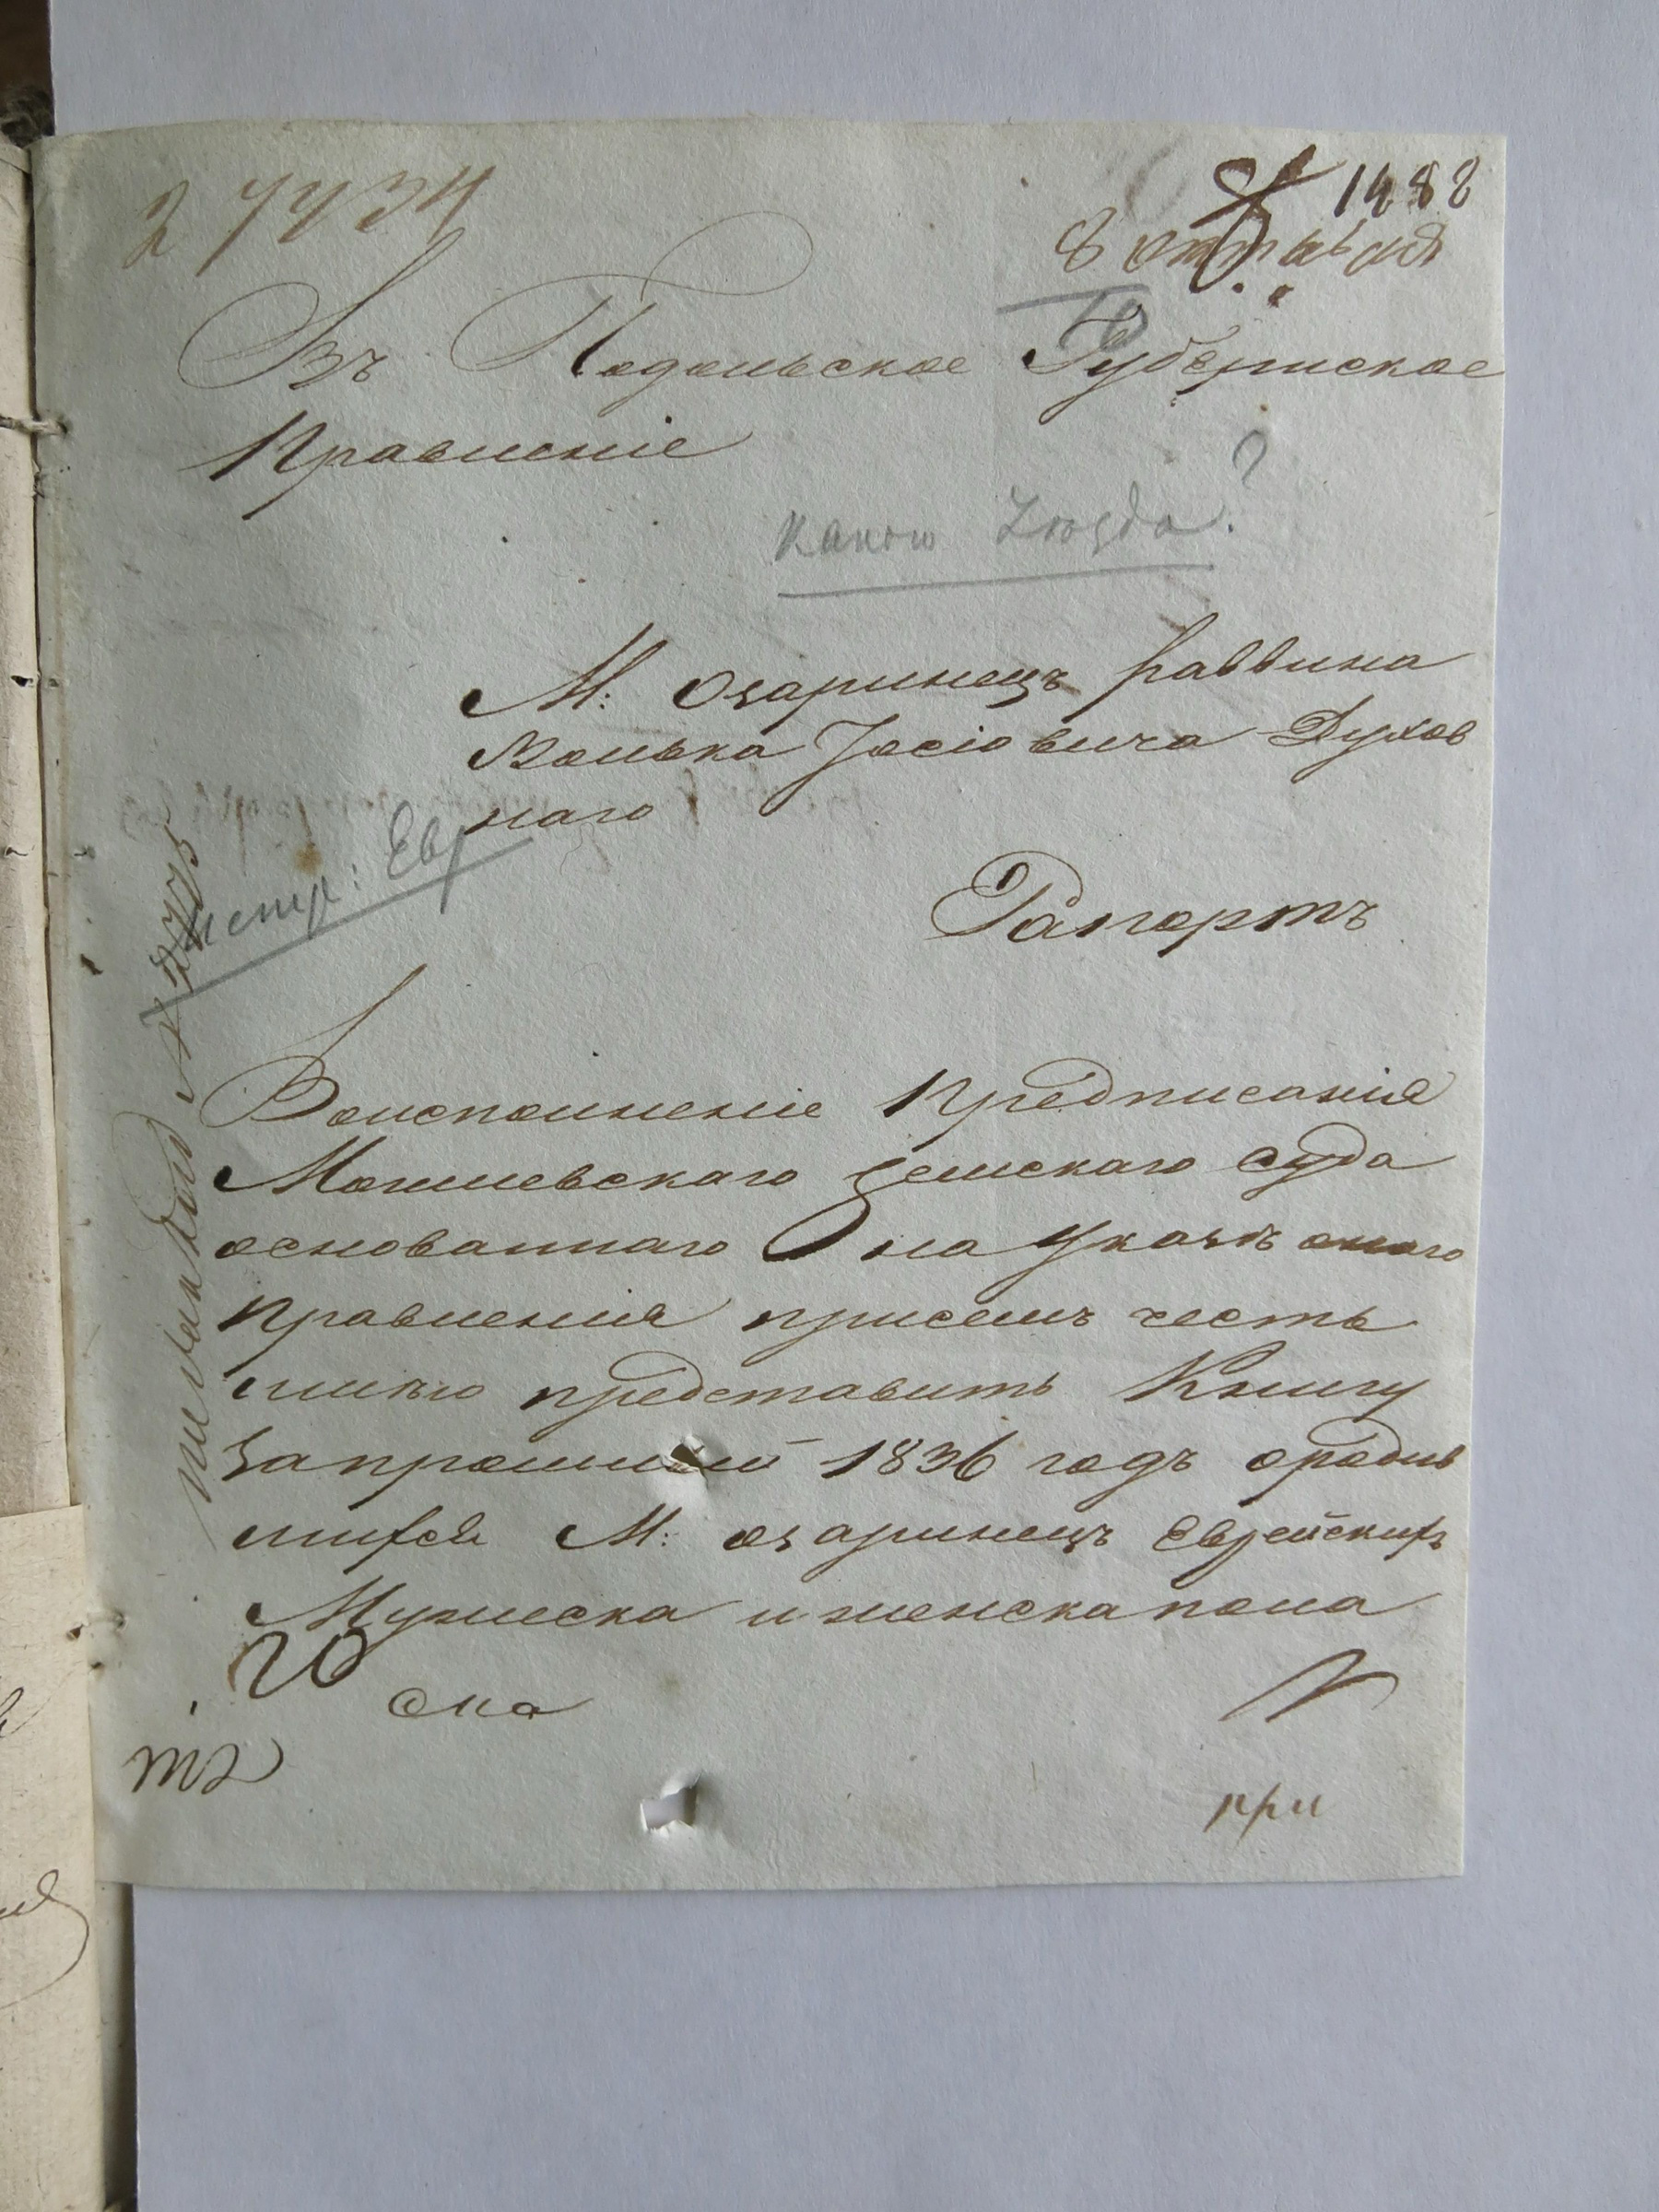 27734
1488
8 октября
Въ Подольское Губернское
Правленіе
Какого Уѣзда?
М: Озаринецъ Раввина
Волька Іосіовича Духов
наго
Рапортъ
метр: Евр
Воисполненіе Предписанія
Могилевскаго Земскаго Суда
основаннаго на Указѣ онаго
Правленія присемъ честь
имѣю представить Книгу
Запрошлый 1836 годъ ородив
шихся М: Озаринецъ Еврейскихъ
Мужеска и женска пола
при